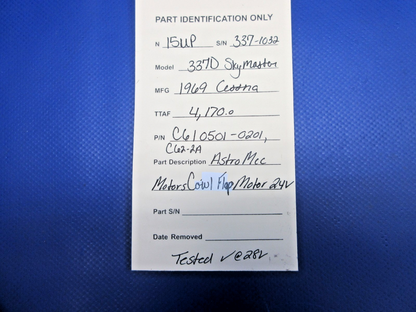 PART IDENTIFICATION ONLY
N 15UP S/N 337-1032
Model 337D SkyMaster
MFG 1969 Cessna
TTAF 4,170.0
P/N C610501-0201,
C62-2A
Part Description Astro Mec
Motors Cowl Flap Motor 24V
Part S/N
Date Removed
Tested √@28V